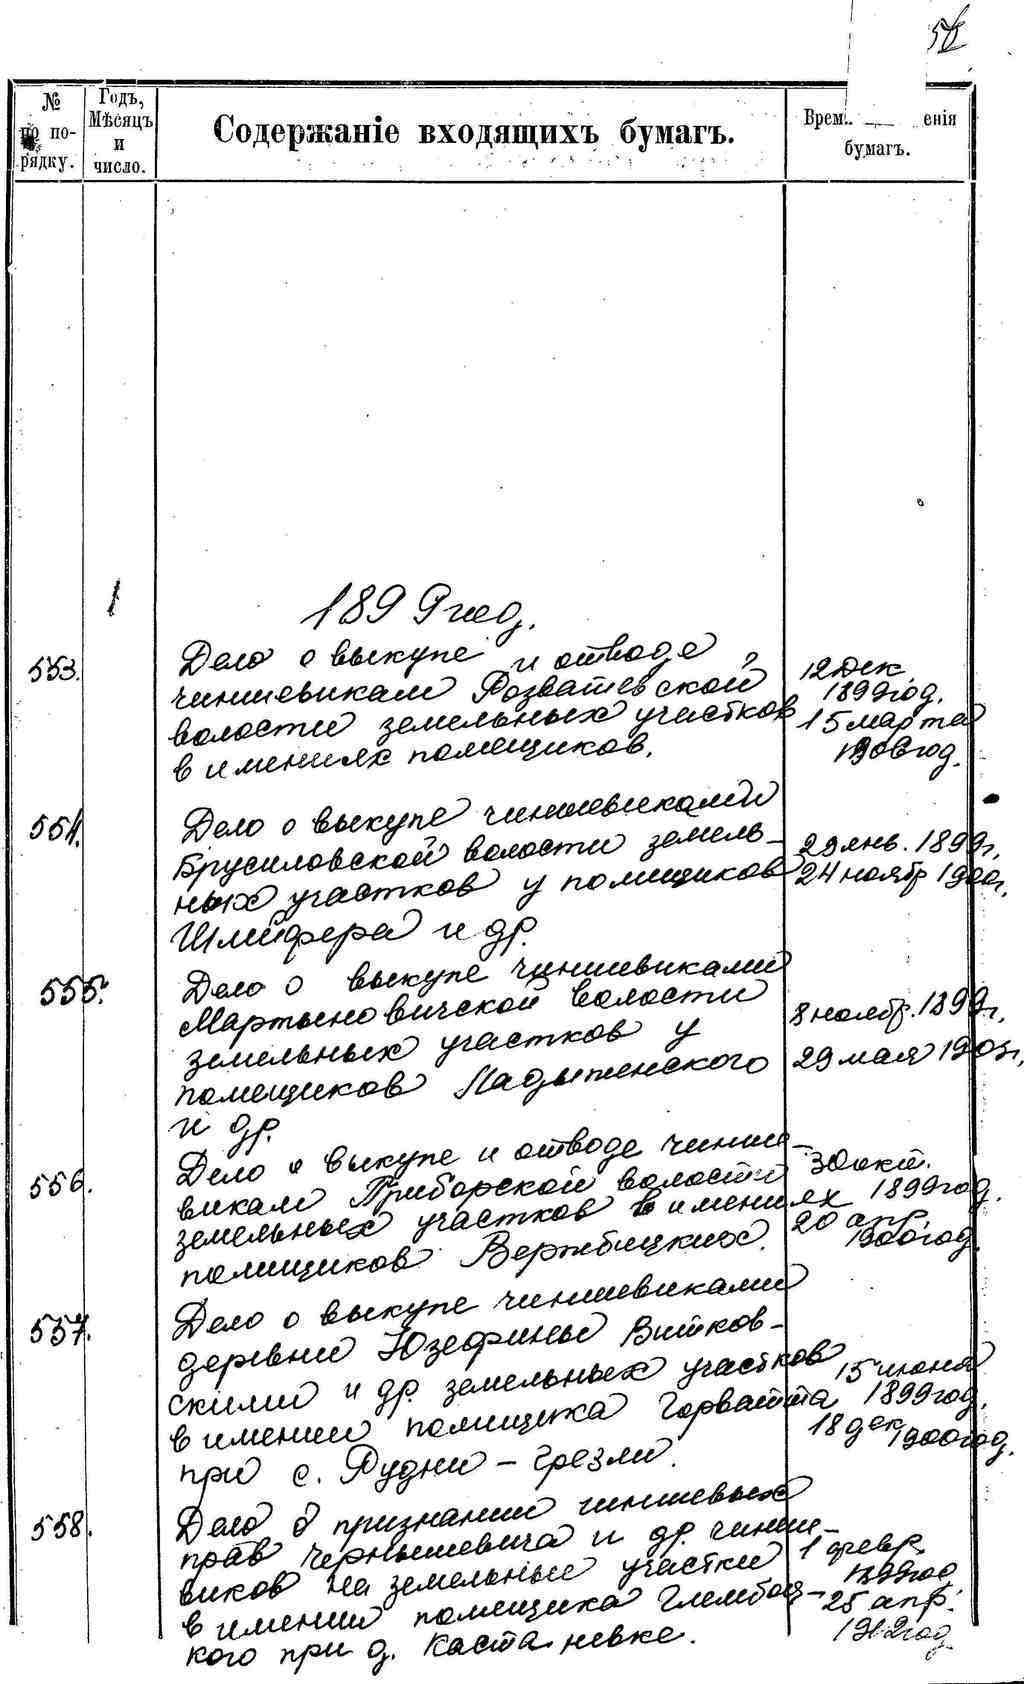 56
№
по по-
рядку.
Годъ,
Мѣсяцъ
и
число.
Содержаніе входящихъ бумагъ.
Врем енія
бумагъ.
1899 год.
553. Дело о выкупе и отводе
чиншевикам Розватевской
волости земельных участков
в имениях помещиков.
12 дек
1899 год.
15 марта
1906 год.
554. Дело о выкупе чиншевиками
Брусиловской волости земель-
ных участков у помещиков
Шлейфера и др.
29 янв. 1899 г.
24 ноябр 1900 г.
555. Дело о выкупе чиншевиками
Мартыновичской волости
земельных участков у
помещиков Ладыженского
и др.
8 ноябр. 1899 г.
29 мая 1903 г.
556. Дело о выкупе и отводе чинше-
викам Приборской волости
земельных участков в имениях
помещиков Вержбицких.
30 окт.
1899 год.
20 апр.
1900 год.
557. Дело о выкупе чиншевиками
деревни Юзефины Витков-
скими и др. земельных участков
в имении помещика Горватта
при с. Рудни - Грезли.
15 июня
1899 год.
18 дек
1900 год.
558. Дело о признании чиншевых
прав Чернышевича и др. чинше-
виков на земельные участки
в имении помещика Глембоц-
кого при д. Кастаневке.
1 февр.
1899 год
25 апр.
1912 год